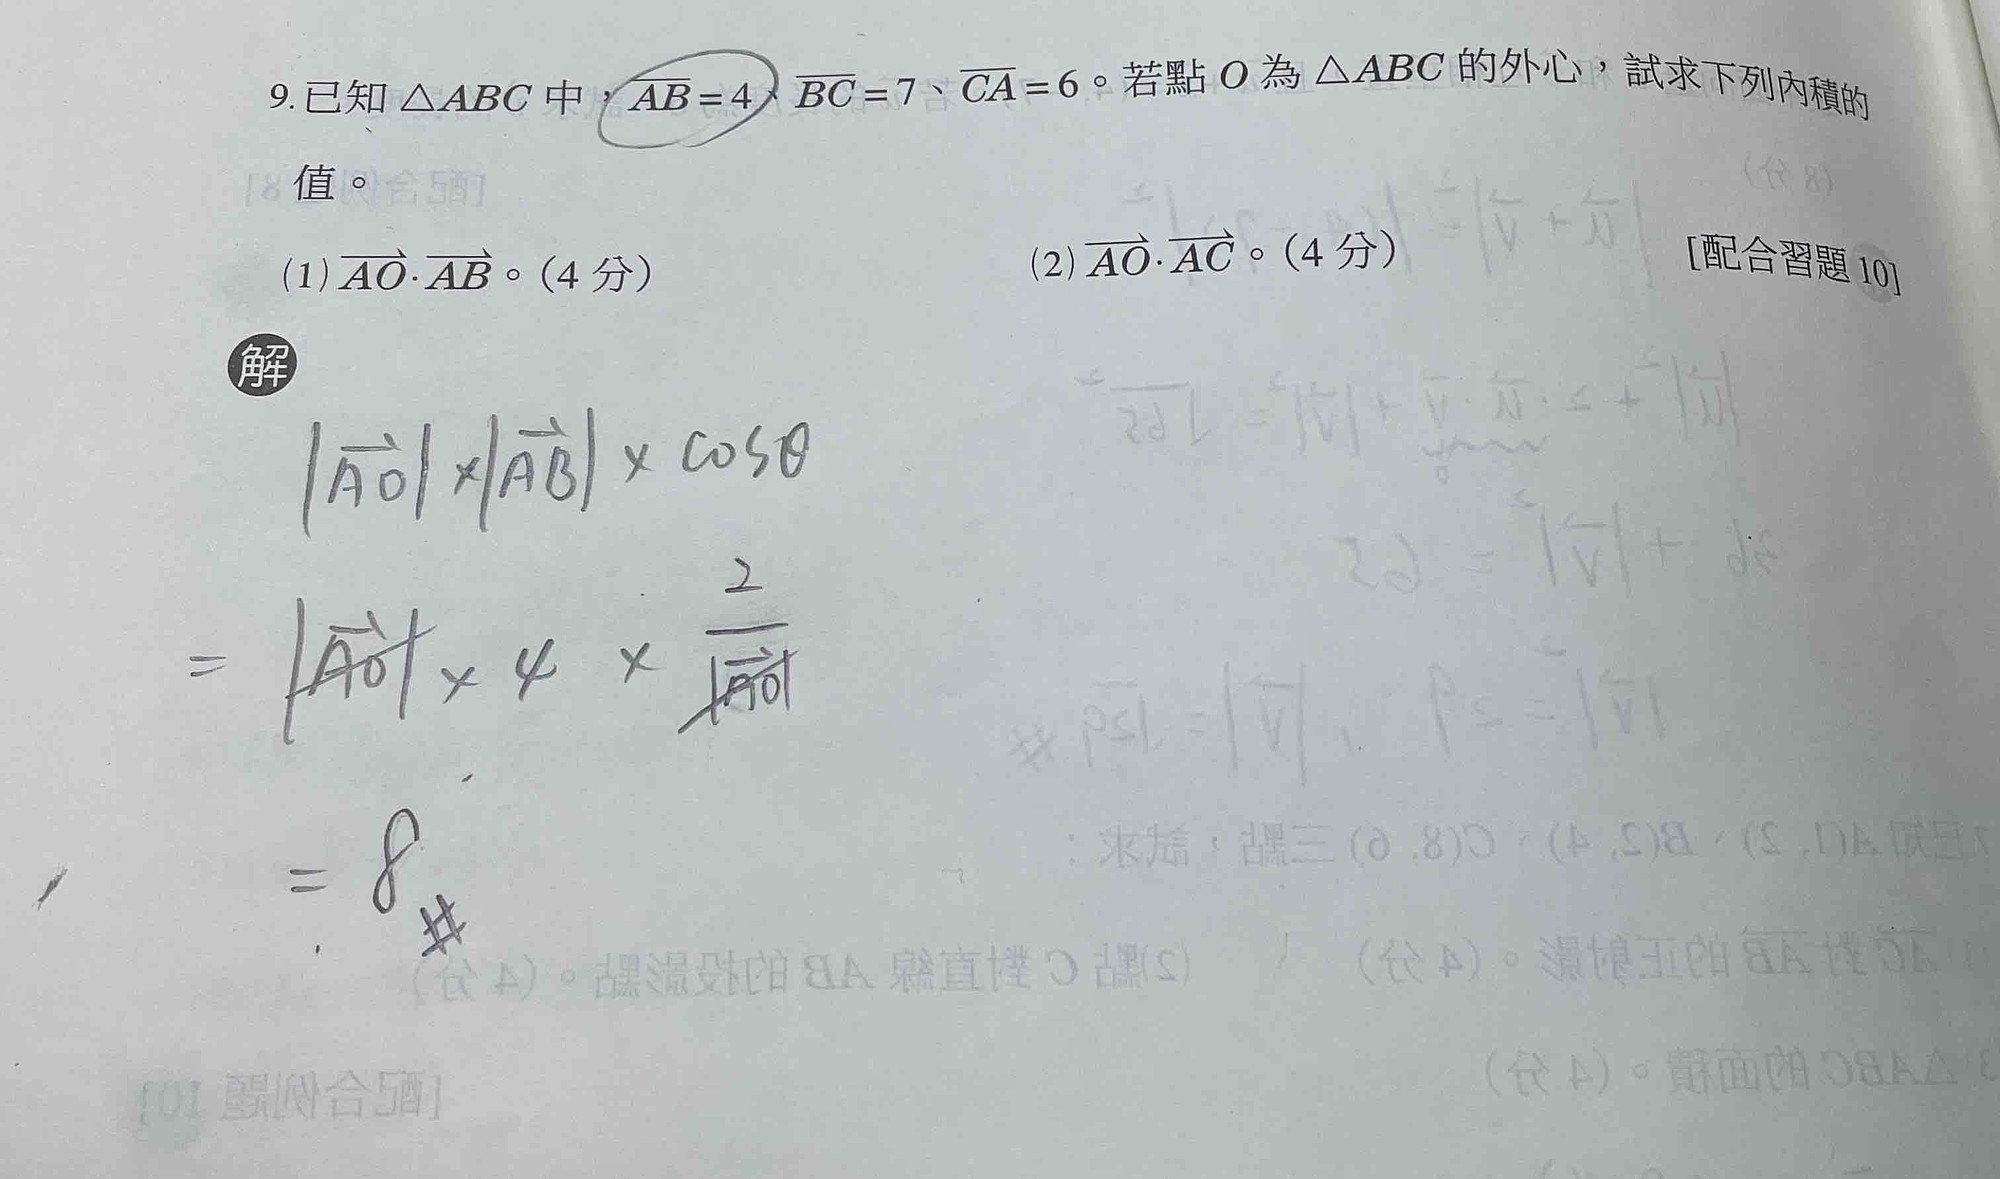 9.已知 △ABC 中，AB=4、BC=7、CA=6。若點 O 為 △ABC 的外心，試求下列內積的
值。
(1) AO·AB。(4 分)
(2) AO·AC。(4 分)
[配合習題 10]
解
|AO| × |AB| × cosθ
= |AO| × 4 × 2/|AO|
= 8 #